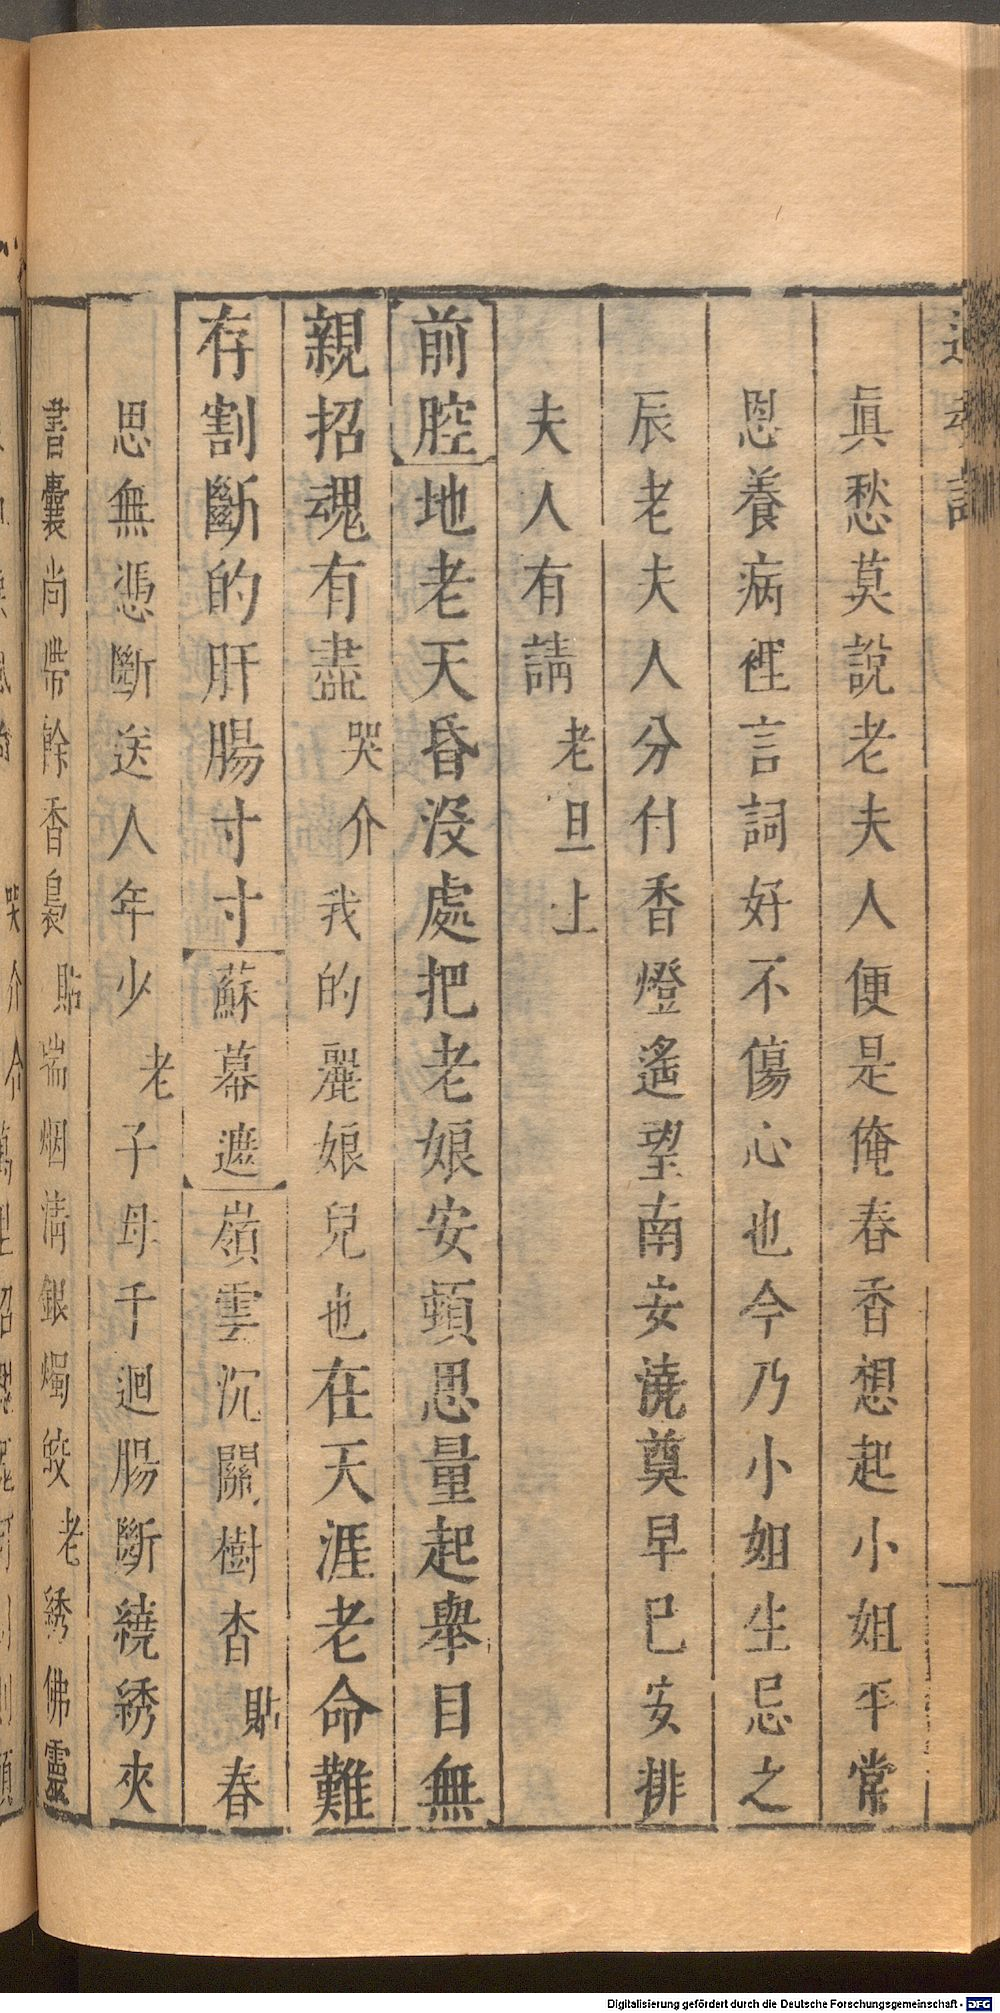 眞愁莫說老夫人便是俺春香想起小姐平常
恩養病裡言詞好不傷心也今乃小姐生忌之
辰老夫人分付香燈遙望南安澆奠早已安排
夫人有請老旦上
前腔地老天昏没處把老娘安頓思量起舉目無
親招魂有盡哭介我的麗娘兒也在天涯老命難
存割斷的肝腸寸寸蘇幕遮嶺雲沉關樹杳貼春
思無慿斷送人年少老子母千迴腸斷繞綉夾
書囊尚帶餘香裊貼瑞烟淸銀燭皎老綉佛靈
Digitalisierung gefördert durch die Deutsche Forschungsgemeinschaft - DFG